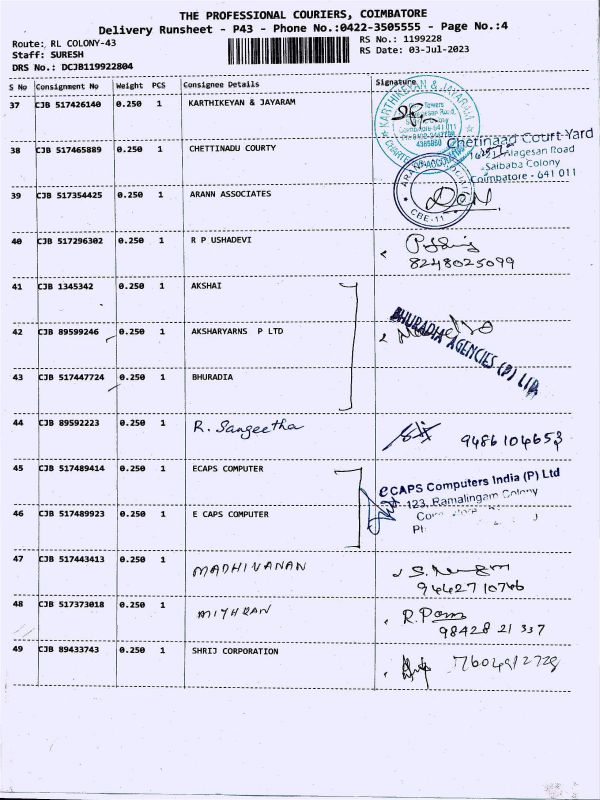 THE PROFESSIONAL COURIERS, COIMBATORE
Delivery Runsheet - P43 - Phone No.:0422-3505555 - Page No.:4
Route: RL COLONY-43
RS No.: 1199228
Staff: SURESH
RS Date: 03-Jul-2023
DRS No.: DCJB119922804
S No Consignment No Weight PCS Consignee Details Signature
37 CJB 517426140 0.250 1 KARTHIKEYAN & JAYARAM
KARTHIKEYAN & JAYARAM
Towers
38 CJB 517465889 0.250 1 CHETTINADU COURTY
Chetinaad Court Yard
Alagesan Road
Saibaba Colony
Coimbatore - 641 011
39 CJB 517354425 0.250 1 ARANN ASSOCIATES
CBE-11
40 CJB 517296302 0.250 1 R P USHADEVI
8248025099
41 CJB 1345342 0.250 1 AKSHAI
42 CJB 89599246 0.250 1 AKSHARYARNS P LTD
BHURADIA AGENCIES (P) LTD
43 CJB 517447724 0.250 1 BHURADIA
44 CJB 89592223 0.250 1 R. Sangeetha
9486104653
45 CJB 517489414 0.250 1 ECAPS COMPUTER
eCAPS Computers India (P) Ltd
123, Ramalingam Colony
46 CJB 517489923 0.250 1 E CAPS COMPUTER
47 CJB 517443413 0.250 1 MADHIVANAN
9442710746
48 CJB 517373018 0.250 1 MITHRAN
98428 21 337
49 CJB 89433743 0.250 1 SHRIJ CORPORATION
7604912728